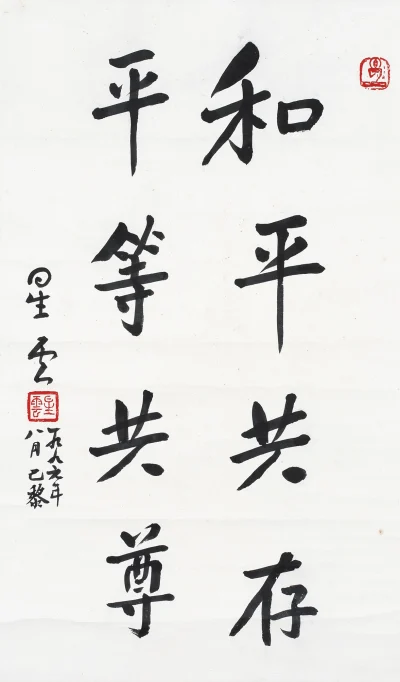 和平共存
平等共尊
星云
一九九六年
八月巴黎
星雲